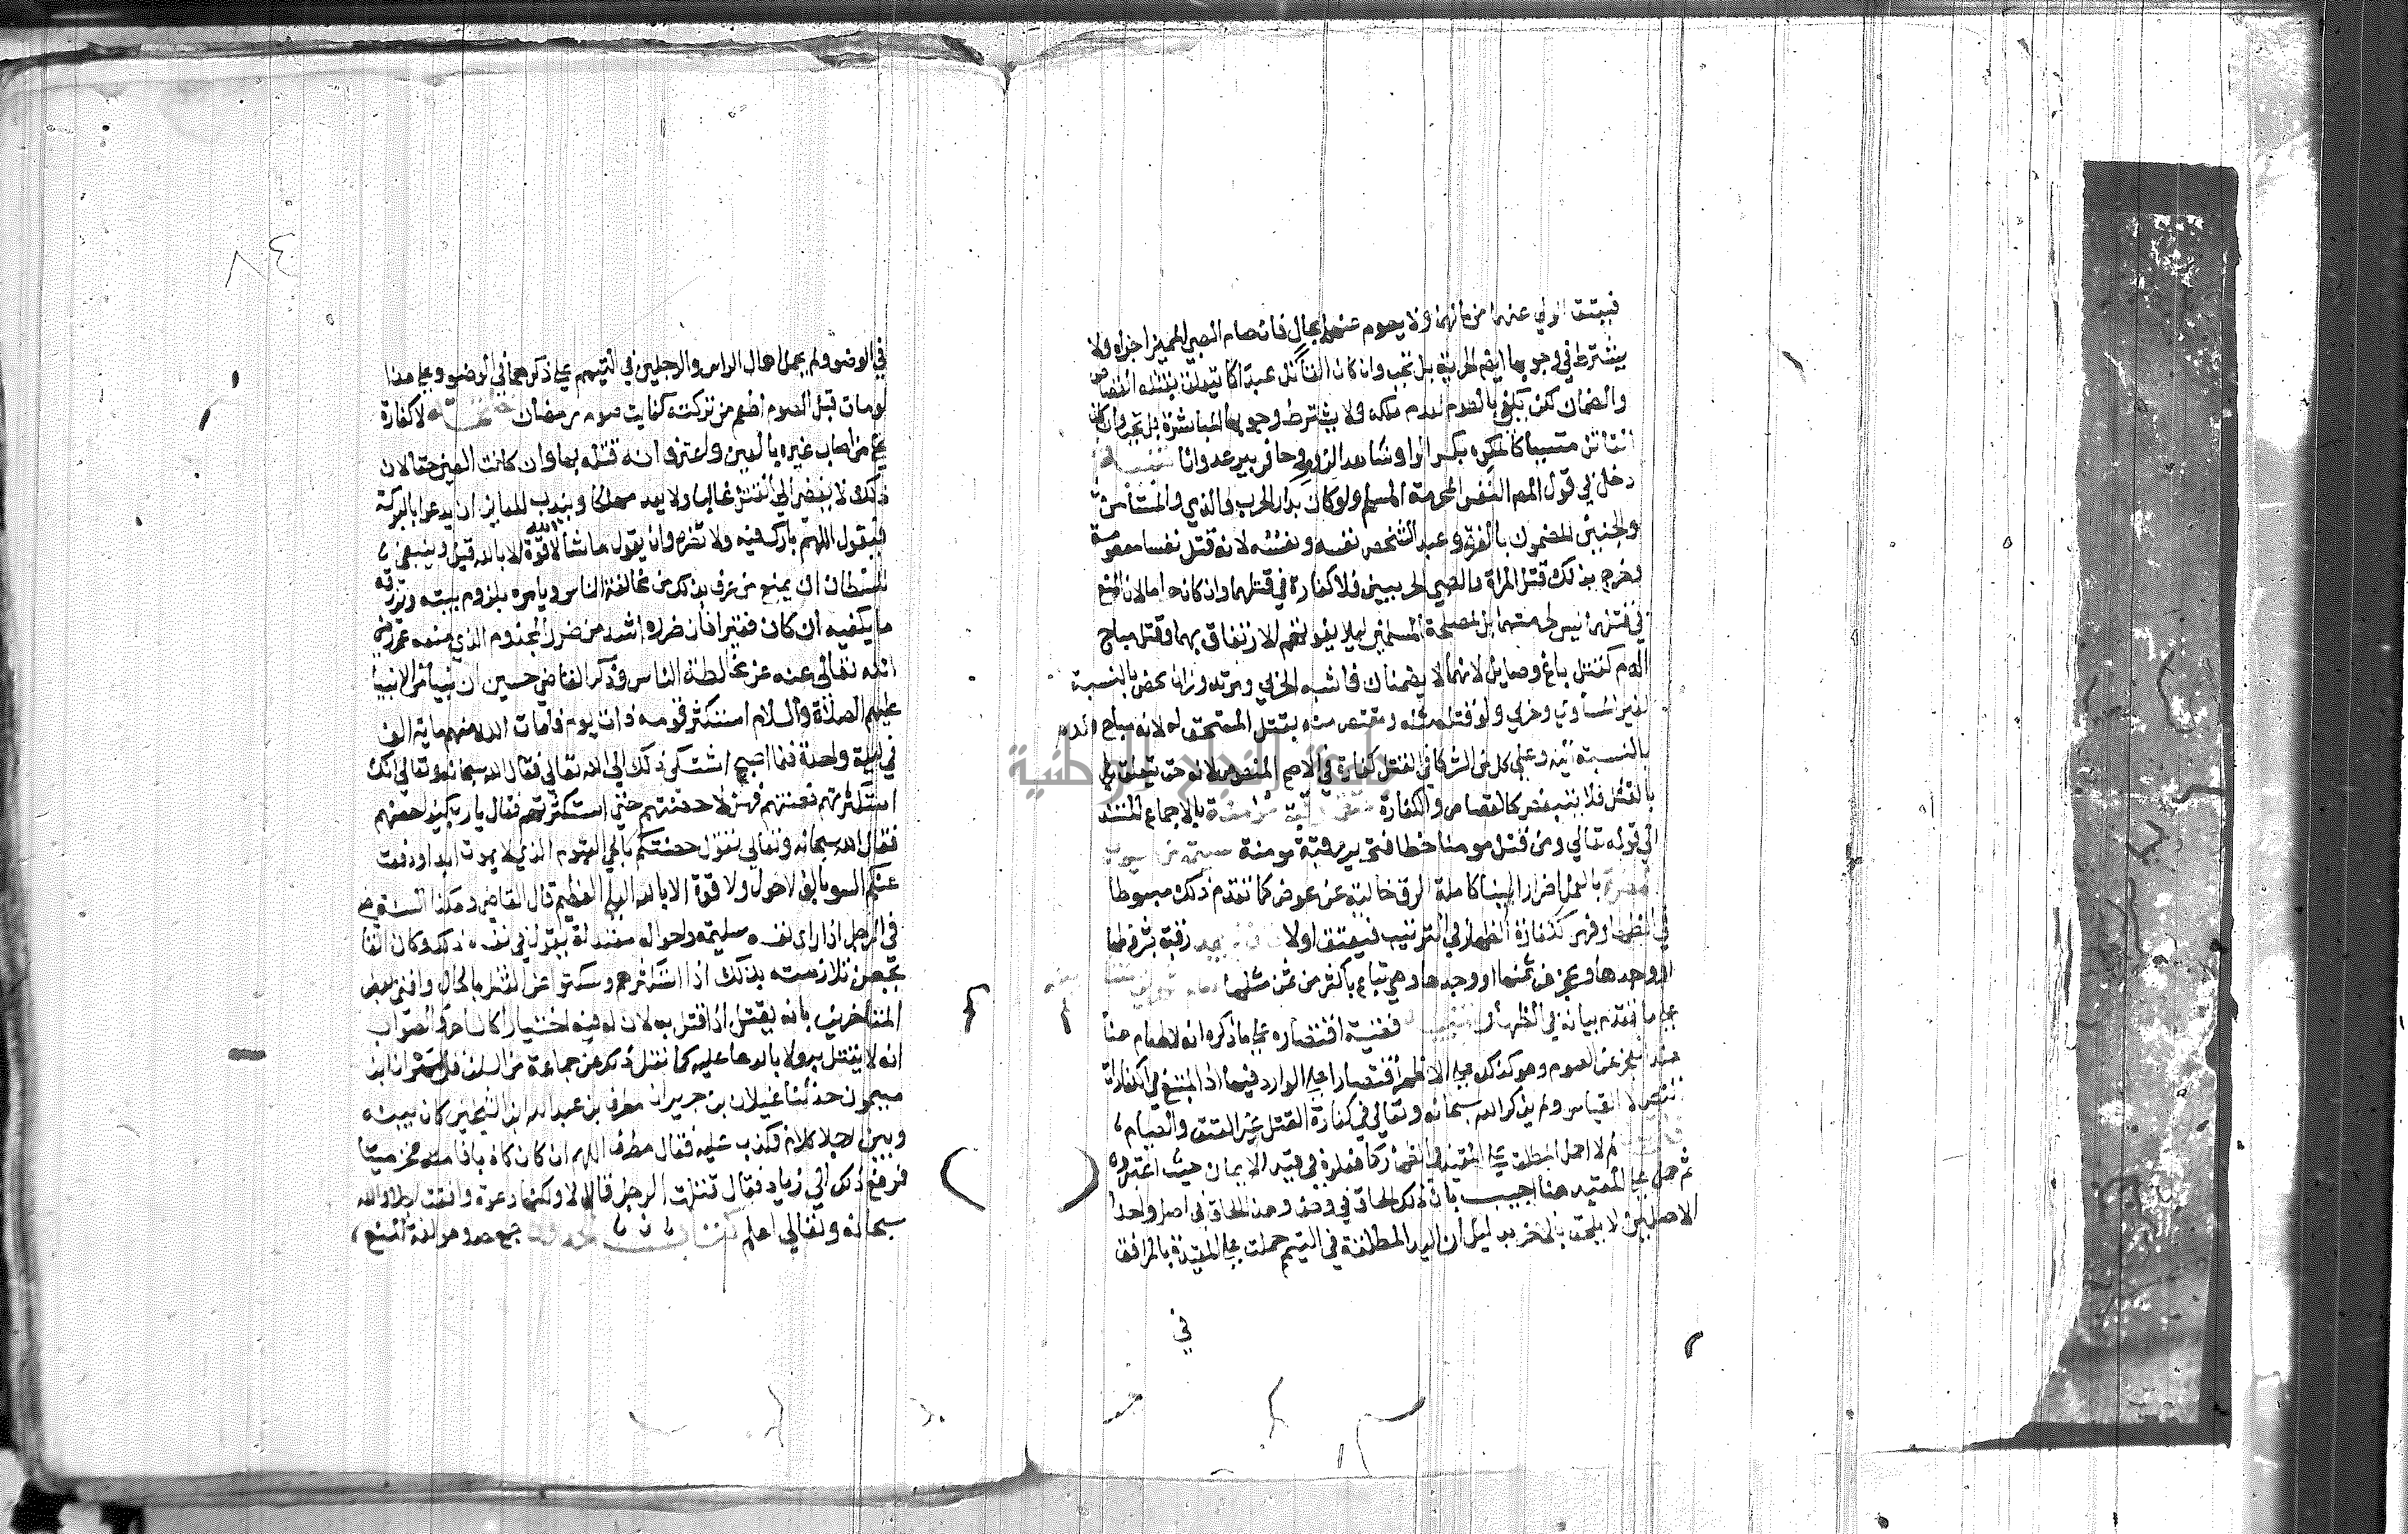 فيعتق الولي عنهما من مالهما ولا يصوم عنهما بحال فان صام الصبي المميز اجزاه ولا
يشترط في وجوبها ايضا الحرية بل تجب وان كان القاتل عبدا كما يتعلق بقتله القصاص
والضمان لكن يكفر بالصوم لعدم ملكه ولا يشترط وجوبها المباشرة بل تجب وان كان
القاتل متسببا كالمكره بكسر الرا وشاهد الزور وحافر بير عدوانا
دخل في قول المصـ النفس المحرمة المسلم ولو كان بدار الحرب والذمي والمستامن
والجنين المضمون بالغرة وعبد الشخص نفسه ونفسه لانه قتل نفسا معصومة
وخرج بذلك قتل المراة والصبي الحربيين فلا كفارة في قتلهما وان كان حراما لان المنع
في قتلهما ليس لحرمتهما بل لمصلحة المسلمين ليلا يفوتهم الارتفاق بهما وقتل مباح
الدم كقتل باغ وصايل لانهما لا يضمنان فاشبه الحربي ومرتد وزان محصن بالنسبة
لغير المساوي وحربي ولو قتله مثله ومقتص منه بقتل المستحق له لانه مباح الدم
بالنسبة اليه وعلى كل من الشركا في القتل كفارة في الاصح المنصوص لانه حق يتعلق
بالقتل فلا يتبعض كالقصاص والكفارة عتق رقبة مومنة بالاجماع المستند
الى قوله تعالى ومن قتل مومنا خطا فتحرير رقبة مومنة سليمة من العيوب
المضرة بالعمل اضرارا بينا كاملة الرق خالية عن عوض كما تقدم ذلك مبسوطا
في الظهار فهي ككفارة الظهار في الترتيب فيعتق اولا فان لم يجد رقبة بشرطها
او وجدها وعجز عن ثمنها او وجدها وهي تباع باكثر من ثمن مثلها
على ما تقدم بيانه في الظهار قضية اقتصاره على ما ذكره انه لا اطعام هنا
عند العجز عن الصوم وهو كذلك على الاظهر اقتصارا على الوارد فيها اذ المتبع في الكفارات
النص لا القياس ولم يذكر الله سبحانه وتعالى في كفارة القتل غير العتق والصيام
لم لا حمل المطلق على المقيد في الظهار كما فعلوه في قيد الايمان حيث اعتبروه
ثم حمل على المقيد هنا اجيب بان ذلك الحاق في وصف وهذا الحاق في اصل واحد
الاصلين لا يلحق بالاخر بدليل ان اليد المطلقة في التيمم حملت على المقيدة بالمرافق
في
في الوضو ولم يحمل اهمال الراس والرجلين في التيمم على ذكرهما في الوضو وعلى هذا
لو مات قبل الصوم اطعم من تركته كفايت صوم رمضان لا كفارة
على من اصاب غيره بالعين واعترف انه قتله بها وان كانت العين حقا لان
ذلك لا يفضي الى القتل غالبا ولا يعد مهلكا ويندب للعاين ان يدعو بالبركة
فيقول اللهم بارك فيه ولا تضره وان يقول ما شا الله لا قوة الا بالله قيل وينبغي
للسلطان ان يمنع من عرف بذلك من مخالطة الناس ويامره بلزوم بيته ويرزقه
ما يكفيه ان كان فقيرا فان ضرره اشد من ضرر المجذوم الذي منعه عمر رضي
الله تعالى عنه عن مخالطة الناس وذكر القاضي حسين ان نبيا من الانبيا
عليهم الصلاة والسلام استكثر قومه ذات يوم فامات الله منهم ماية الف
في ليلة واحدة فلما اصبح اشتكى ذلك الى الله تعالى فقال الله سبحانه وتعالى انك
استكثرتهم فعنتهم فهلا حصنتهم حين استكثرتهم فقال يا رب كيف احصنهم
فقال الله سبحانه وتعالى تقول حصنتكم بالحي القيوم الذي لا يموت ابدا ودفعت
عنكم السو بالف لا حول ولا قوة الا بالله العلي العظيم قال القاضي وهكذا السنة
في الرجل اذا راى نفسه سليمة واحواله معتدلة يقول في نفسه ذلك وكان القا
يحصن تلامذته بذلك اذا استكثرهم وسكتوا عن القتل بالحال وافتى بعض
المتاخرين بانه يقتل اذا قتل به لان له فيه اختيارا كالساحر والصواب
انه لا يقتل به ولا بالدعا عليه كما نقل ذلك عن جماعة من السلف قال انا ابن
ميمون حدثنا غيلان بن جرير ان مطرف بن عبد الله بن الشخير كان بينه
وبين رجل كلام فكذب عليه فقال مطرف اللهم ان كان كاذبا فامته فخر ميتا
فرفع ذلك الى زياد فقال قتلت الرجل قال لا ولكنها دعوة وافقت اجلا والله
سبحانه وتعالى اعلم جمع حد وهو لغة المنع